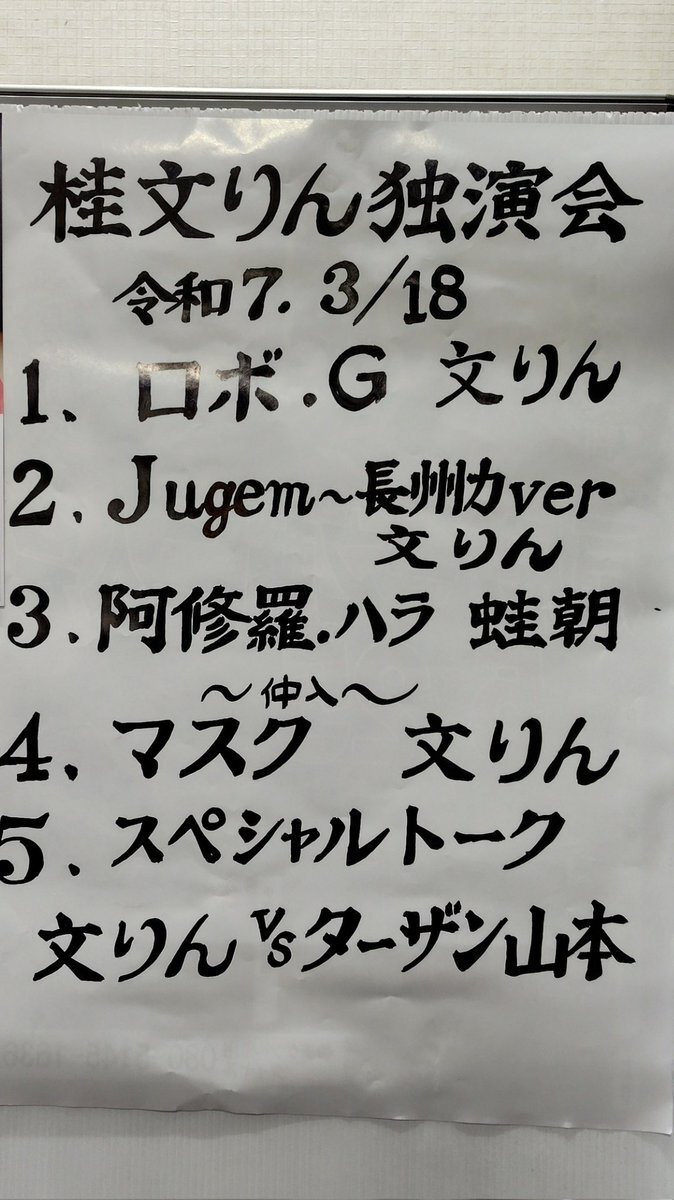 桂文りん独演会
令和7. 3/18
1、ロボ.G 文りん
2、Jugem～長州力ver
文りん
3、阿修羅.ハラ 蛙朝
～仲入～
4、マスク 文りん
5、スペシャルトーク
文りんvsターザン山本